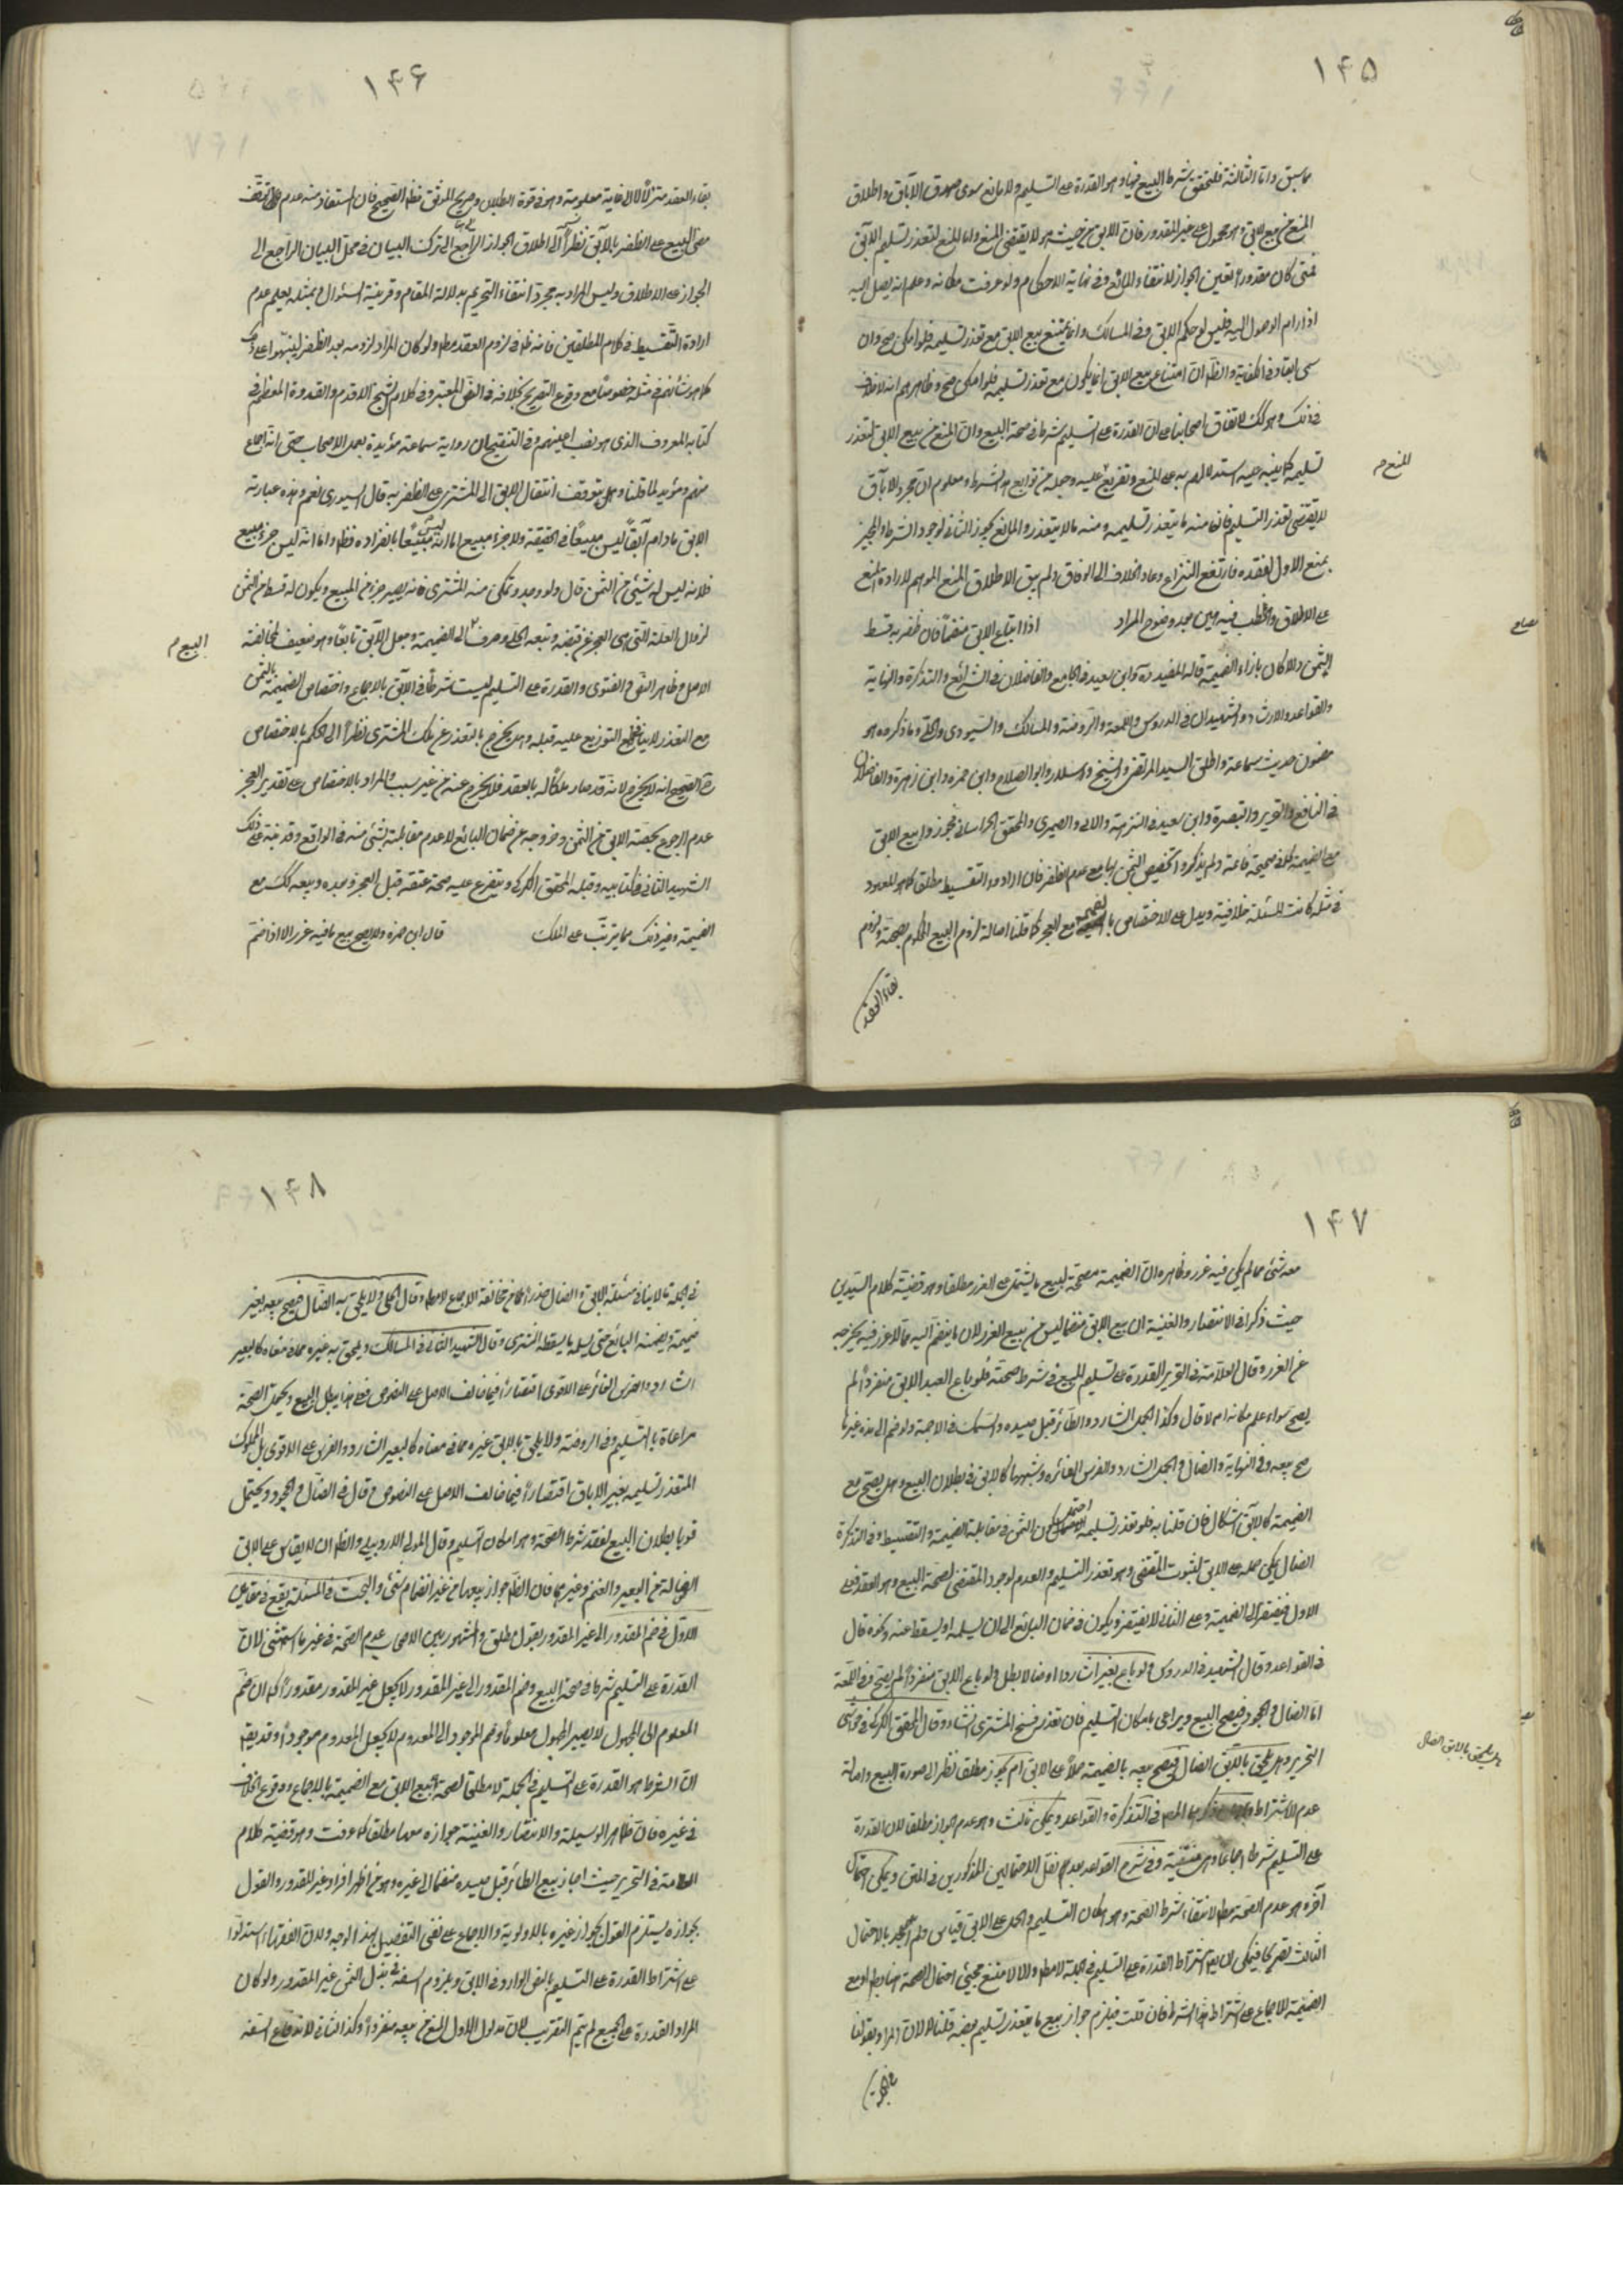 ١٤٥
ما سبق واما الثالثة فلتحقق شرط البيع فيها وهو القدرة على التسليم ولا مانع سوى صدق الآبق واطلاق
المنع من بيع الآبق وهو محمول على غير المقدور فان الاباق من حيث هو لا يقتضي المنع وانما المنع لتعذر تسليم الآبق
فمتى كان مقدورا تعين الجواز لانتفاء المانع وفي نهاية الاحكام ولو عرفت مكانه وعلم انه يصل اليه
اذا رام الوصول اليه فليس له حكم الآبق وفي المسالك وانما يمتنع بيع الآبق مع تعذر تسليمه فلو امكن صح وان
سمي آبقا وفي الكفاية والظ ان امتناع بيع الآبق انما يكون مع تعذر تسليمه فلو امكن صح وظاهرهم انه لا خلاف
في ذلك وهو كك لاتفاق اصحابنا على ان القدرة على التسليم شرط في صحة البيع وان المنع من بيع الآبق لتعذر
تسليمه كما ينبه عليه استدلالهم به على المنع وتفريعه عليه وجعله من توابع هذا الشرط ومعلوم ان مجرد الاباق
للمنع م
لا يقتضي تعذر التسليم فان منه ما يتعذر تسليمه ومنه ما لا يتعذر والمانع يجوز الثاني لوجود الشرط والمجيز
يمنع الاول لفقده فارتفع النزاع وعاد الخلاف الى الوفاق ولم يبق الا اطلاق المنع الموهم لارادة المنع
على الاطلاق والخطب فيه هين بعد وضوح المراد اذا ابتاع الآبق منضما فان ظفر به قسط
الثمن والا كان بازاء الضميمة قاله المفيد وابن سعيد في الجامع والفاضلان في الشرائع والتذكرة والنهاية
والقواعد والارشاد والشهيدان في الدروس واللمعة والروضة والمسالك والسيوري والحلي وما ذكروه هو
مضمون حديث سماعة واطلق السيد المرتضى والشيخ وسلار وابو الصلاح وابن حمزه وابن زهرة والفاضلان
في النافع والتحرير والتبصرة وابن سعيد في النزهة والآبي والصيمري والمحقق الخراساني فجوزوا بيع الآبق
مع الضميمة كما في صحيحة رفاعة ولم يذكروا تخصيص الثمن بها مع عدم الظفر فان ارادوا التقسيط مطلق كما هو المعهود
في مثله كانت المسئلة خلافية ويدل على الاختصاص بالضميمة مع العجز كما قلنا اصالة لزوم البيع المحكوم بصحته ولزوم
بقاء العقد
١٤٦
بقاء العقد متزلزلا لا الى غاية معلومة وهو في قوة البطلان وصريح الموثق وظ الصحيح فان المستفاد منه عدم توقف
مضي البيع على الظفر بالآبق نظرا الى اطلاق الجواز الراجع الى ترك البيان في محل البيان الراجع الى
الجواز على الاطلاق وليس المراد به مجرد انتفاء التحريم بدلالة المقام وقرينة السئوال وبمثله يعلم عدم
ارادة التقسيط في كلام المطلقين فانه ظ في لزوم العقد مط ولو كان المراد لزومه بعد الظفر لينبهوا على ذلك
كما هو شأنهم في مثله خصوصا مع وقوع التصريح بخلافه في النص المعتبر وفي كلام الشيخ الاقدم والقدوة المعظم في
كتابه المعروف الذي هو نصب اعينهم وفي التنقيح ان رواية سماعة مؤيدة بعمل الاصحاب حتى انه اجماع
منهم ومؤيد لما قلنا وهل يتوقف انتقال الآبق الى المشتري على الظفر به قال السيوري نعم وهذه عبارته
الآبق مادام آبقا ليس مبيعا في الحقيقة ولا جزء مبيع اما انه ليس مبيعا بانفراده فظ واما انه ليس جزء مبيع
فلانه ليس له شيئ من الثمن قال ولو وجد وتمكن منه المشتري فانه يصير جزء من المبيع ويكون له قسط من الثمن
لزوال العلة التي هي العجز عن قبضه وتبعه الحلي وصرف البيع الى الضميمة وجعل الآبق تابعا وهو ضعيف لمخالفته
البيع م
الاصل وظاهر النص والفتوى والقدرة على التسليم ليست شرطا في الآبق بالاجماع واختصاص الضميمة بالثمن
مع التعذر لا ينافي التوزيع عليه قبله وهل يخرج بالتعذر عن ملك المشتري نظرا الى الحكم بالاختصاص
الصحيح انه لا يخرج لانه قد صار ملكا له بالعقد فلا يخرج عنه من غير سبب والمراد بالاختصاص على تقدير العجز
عدم الرجوع بحصة الآبق من الثمن وخروجه عن ضمان البائع لا عدم مقابلته بشئ منه في الواقع وقد نبه على ذلك
الشهيد الثاني في كتابيه وقبله المحقق الكركي ويتفرع عليه صحة عتقه قبل العجز وبعده وبيعه كك مع
الضميمة وغير ذلك مما يترتب على الملك قال ابن حمزه ولا يصح بيع ما فيه غرر الا اذا ضم
١٤٧
معه شئ مما لم يكن فيه غرر وظاهره ان الضميمة مصححة لبيع ما يشتمل على الغرر مطلقا وهو قضية كلام السيدين
حيث ذكرا في الانتصار والغنية ان بيع الآبق منضما ليس من بيع الغرر لان ما ينضم اليه مما لا غرر فيه يخرجه
عن الغرر وقال العلامة في التحرير القدرة على تسليم المبيع شرط في صحته فلو باع العبد الآبق منفردا لم
يصح سواء علم مكانه ام لا قال وكذا الجمل الشارد والطائر قبل صيده والسمك في الاجمة ولو ضم الى هذه غيرها
صح بيعه وفي النهاية والضال في الجمل الشارد والفرس الغائره وشبهها كالآبق في بطلان البيع وهل يصح مع
الضميمة كالآبق اشكال فان قلنا به فلو تعذر تسليمه احتمل كون الثمن في مقابلة الضميمة والتقسيط وفي التذكرة
الضال يمكن حمله على الآبق لثبوت المقتضي وهو تعذر التسليم والعدم لوجود المقتضي لصحة البيع وهو العقد فعلى
الاول يفتقر الى الضميمة وعلى الثاني لا يفتقر ويكون في ضمان البائع الى ان يسلمه او يسقط عنه ونحوه قال
في القواعد وقال الشهيد في الدروس ولو باع بعيرا شاردا او ضالا بطل ولو باع الآبق منفردا لم يصح وفي اللمعة
اما الضال والمجحود فيصح البيع ويراعى بامكان التسليم فان تعذر فسخ المشتري ان شاء وقال المحقق الكركي في حواشي
التحرير وهل يلحق بالآبق الضال فيصح بيعه بالضميمة حملا على الآبق ام يجوز مطلق نظرا الى صورة البيع واصالة
وهل يلحق بالآبق الضال
عدم الاشتراط ذكرهما المص في التذكرة والقواعد ويمكن ثالث وهو عدم الجواز مطلقا لان القدرة
على التسليم شرط اجماعا وهي منتفية وفي شرح القواعد بعد نقل الاحتمالين المذكورين في المتن ويمكن احتمال
آخر وهو عدم الصحة مط لانتفاء شرط الصحة وهو امكان التسليم والحمل على الآبق قياس ولم نجد بالاحتمال
الثالث تصريحا فيمكن ان يعد اشتراط القدرة على التسليم في الجملة لا مط والا لامتنع مجيئ احتمال الصحة هنا مط او مع
الضميمة للاجماع على اشتراط هذا الشرط فان قلت فيلزم جواز بيع ما يتعذر تسليم بعضه قلنا لا لان المراد بقولنا
في الجملة
١٤٨
في الجملة ما لا ينافي مسئلة الآبق والضال حذرا من مخالفة الاجماع لا مط وقال الحلي ولا يلحق به الضال فيصح بيعه بغير
ضميمة ويضمنه البائع حتى يسلمه او يسقطه المشتري وقال الشهيد الثاني في المسالك ولا يلحق به غيره مما في معناه كالبعير
الشارد والفرس الغائر على الاقوى اقتصارا فيما خالف الاصل على النصوص فعلى هذا يبطل البيع ويحتمل الصحة
مراعاة بالتسليم وفي الروضة ولا يلحق بالآبق غيره مما في معناه كالبعير الشارد والفرس على الاقوى بل المملوك
المتعذر تسليمه بغير الاباق اقتصارا فيما خالف الاصل على النصوص وقال في الضال والمجحود ويحتمل
قويا بطلان البيع لفقد شرط الصحة وهو امكان التسليم وقال المولى الاردبيلي والظ ان لا يقاس على الآبق
الضالة من البعير والغنم وغيرهما فان الظ جواز بيعها من غير انضمام شئ والبحث في المسئلة يقع في مقامين
الاول في ضم المقدور الى غير المقدور بقول مطلق والمشهور بين الاصحاب عدم الصحة في غير ما استثنى لان
القدرة على التسليم شرط في صحة البيع وضم المقدور الى غير المقدور لا يجعل غير المقدور مقدورا كما ان ضم
المعلوم الى المجهول لا يصير المجهول معلوما وضم الموجود الى المعدوم لا يجعل المعدوم موجودا وقد يقال
ان الشرط هو القدرة على التسليم في الجملة لا مطلقا لصحة بيع الآبق مع الضميمة بالاجماع ووقوع الخلاف
في غيره فان ظاهر الوسيلة والانتصار والغنية جوازه معها مطلقا كما عرفت وهو قضية كلام
العلامة في التحرير حيث اجاز بيع الطائر قبل صيده منضما الى غيره وهو من اظهر افراد غير المقدور والقول
بجوازه يستلزم القول بجواز غيره بالاولوية والاجماع على نفي التفصيل بهذا الوجه ولان الفقهاء استدلوا
على اشتراط القدرة على التسليم بالنص الوارد في الآبق وبلزوم السفه في بذل الثمن غير المقدور ولو كان
المراد القدرة على الجميع لم يتم التقريب لان مدلول الاول المنع من بيعه منفردا وكذا الثاني لاندفاع السفه